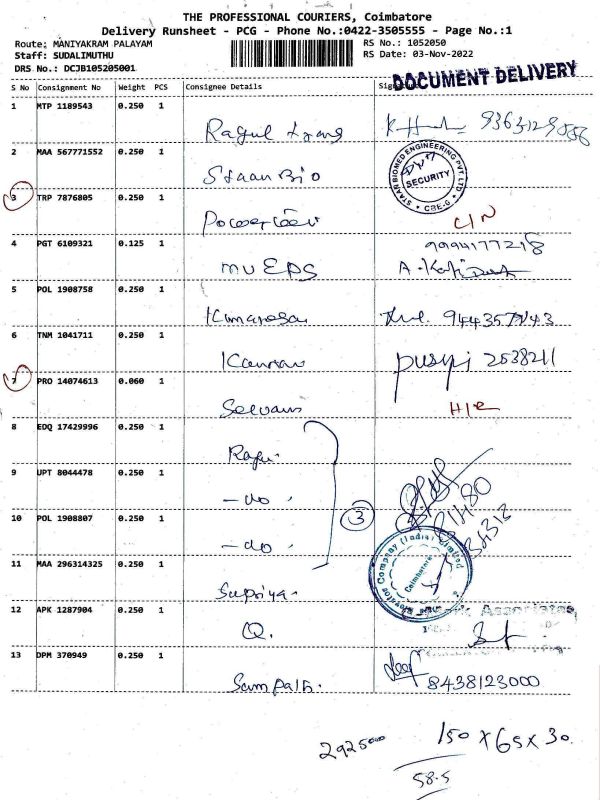 THE PROFESSIONAL COURIERS, Coimbatore
Delivery Runsheet - PCG - Phone No.:0422-3505555 - Page No.:1
Route: MANIYAKRAM PALAYAM RS No.: 1052050
Staff: SUDALIMUTHU RS Date: 03-Nov-2022
DRS No.: DCJB105205001
DOCUMENT DELIVERY
S No Consignment No Weight PCS Consignee Details
1 MTP 1189543 0.250 1
Ragul
2 MAA 567771552 0.250 1
StaanBio
STAAN BIOMED ENGINEERING PVT. LTD
SECURITY
CBE-6
3 TRP 7876805 0.250 1
4 PGT 6109321 0.125 1
9994177218
MVEDS
5 POL 1908758 0.250 1
6 TNM 1041711 0.250 1
2538211
7 PRO 14074613 0.060 1
8 EDQ 17429996 0.250 1
9 UPT 8044478 0.250 1
-do
3
10 POL 1908807 0.250 1
-do
Elevator Company (India) Limited
Coimbatore
11 MAA 296314325 0.250 1
Supriya
12 APK 1287904 0.250 1
Q.
13 DPM 370949 0.250 1
Sampath. 8438123000
2925000 150 x 65 x 30
58.5